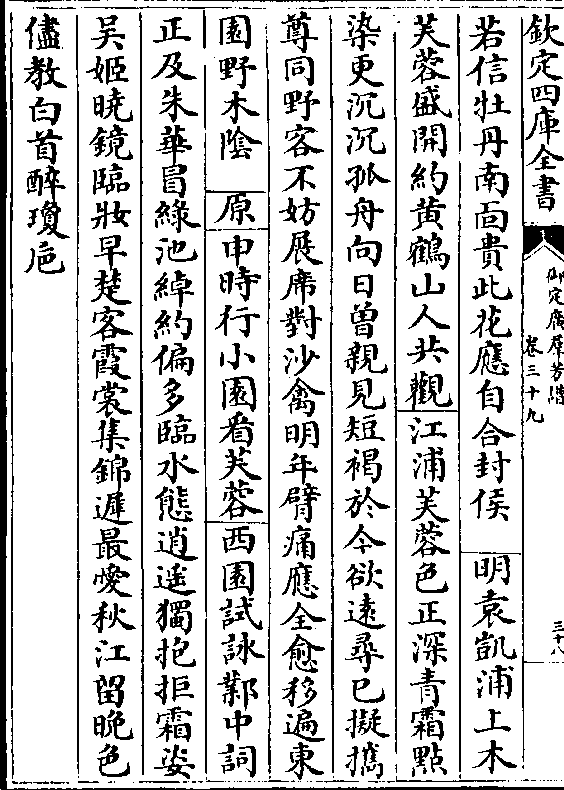 欽定四庫全書
御定廣羣芳譜
卷三十九
三十八
若信牡丹南面貴此花應自合封侯 明袁凱浦上木
芙蓉盛開約黄鶴山人共觀江浦芙蓉色正深青霜點
染更沉沉孤舟向日曾親見短褐於今欲遠尋已擬攜
尊同野客不妨展席對沙禽明年臂痛應全愈移遍東
園野木陰 原申時行小園看芙蓉西園試詠鄴中詞
正及朱華冒綠池綽約偏多臨水態逍遥獨抱拒霜姿
吳姬曉鏡臨妝早楚客霞裳集錦遲最愛秋江留晩色
儘教白首醉瓊巵